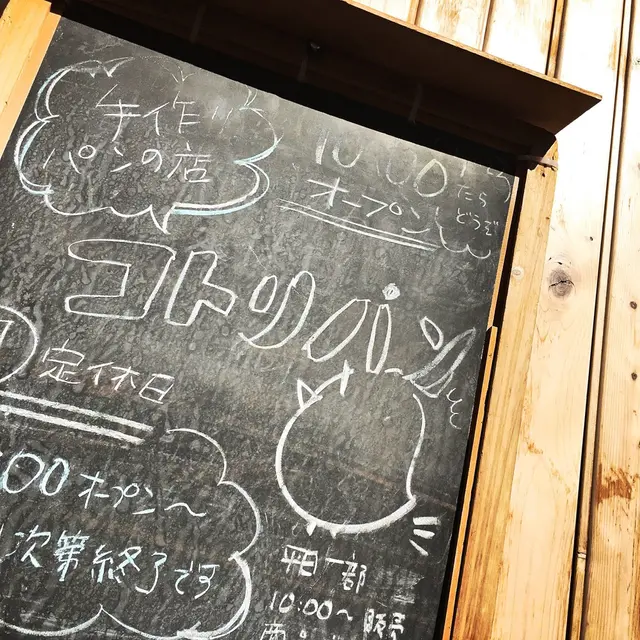 手作り
パンの店
10:00
オープン
たら
どうぞ
コトリパン
定休日
:00 オープン〜
次第終了です
一部
10:00〜 販売